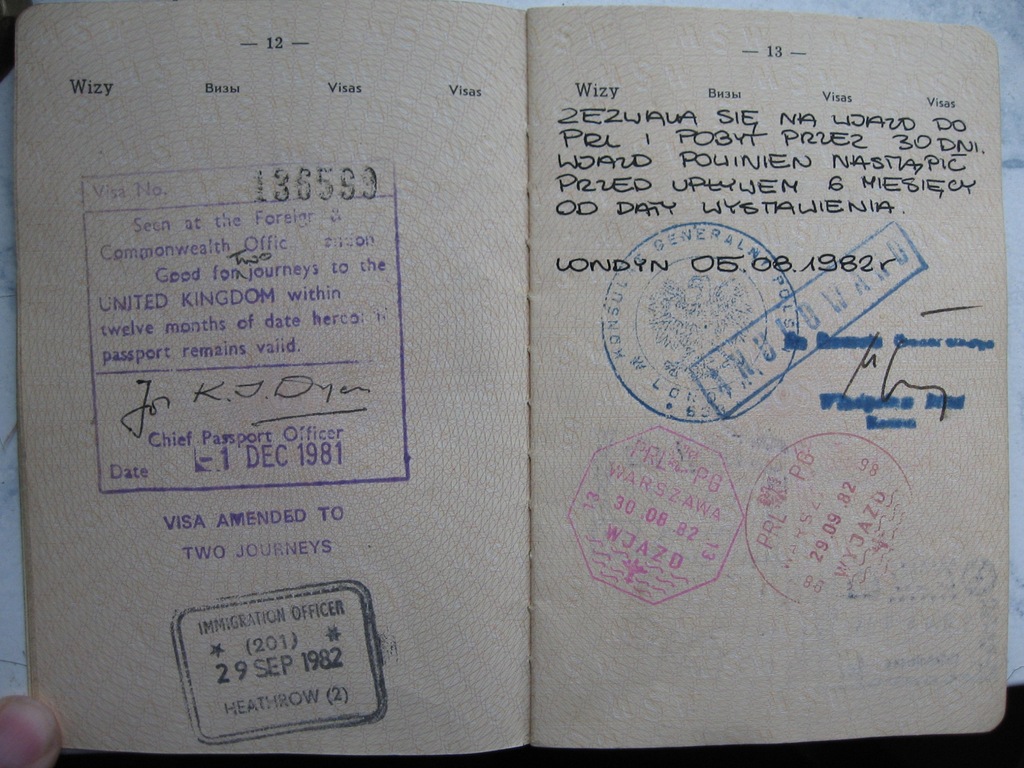 — 12 —
Wizy Визы Visas Visas
Visa No. 136593
Seen at the Foreign &
Commonwealth Offic
Two
Good for journeys to the
UNITED KINGDOM within
twelve months of date hereof if
passport remains valid.
for K.J. Dyer
Chief Passport Officer
Date -1 DEC 1981
VISA AMENDED TO
TWO JOURNEYS
IMMIGRATION OFFICER
* (201) *
29 SEP 1982
HEATHROW (2)
— 13 —
Wizy Визы Visas Visas
ZEZWALA SIĘ NA WJAZD DO
PRL I POBYT PRZEZ 30 DNI.
WJAZD POWINIEN NASTĄPIĆ
PRZED UPŁYWEM 6 MIESIĘCY
OD DATY WYSTAWIENIA.
LONDYN 05.08.1982r
KONSULAT GENERALNY
PRL PG
WARSZAWA
13 30 08 82 13
WJAZD
PRL PG
98
29.09.82
WYJAZD